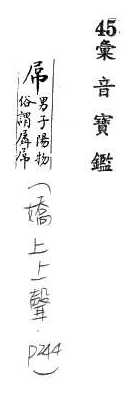 45.彙音寶鑑
屌 男子陽物
俗謂羼屌
(嬌上上聲.P244)